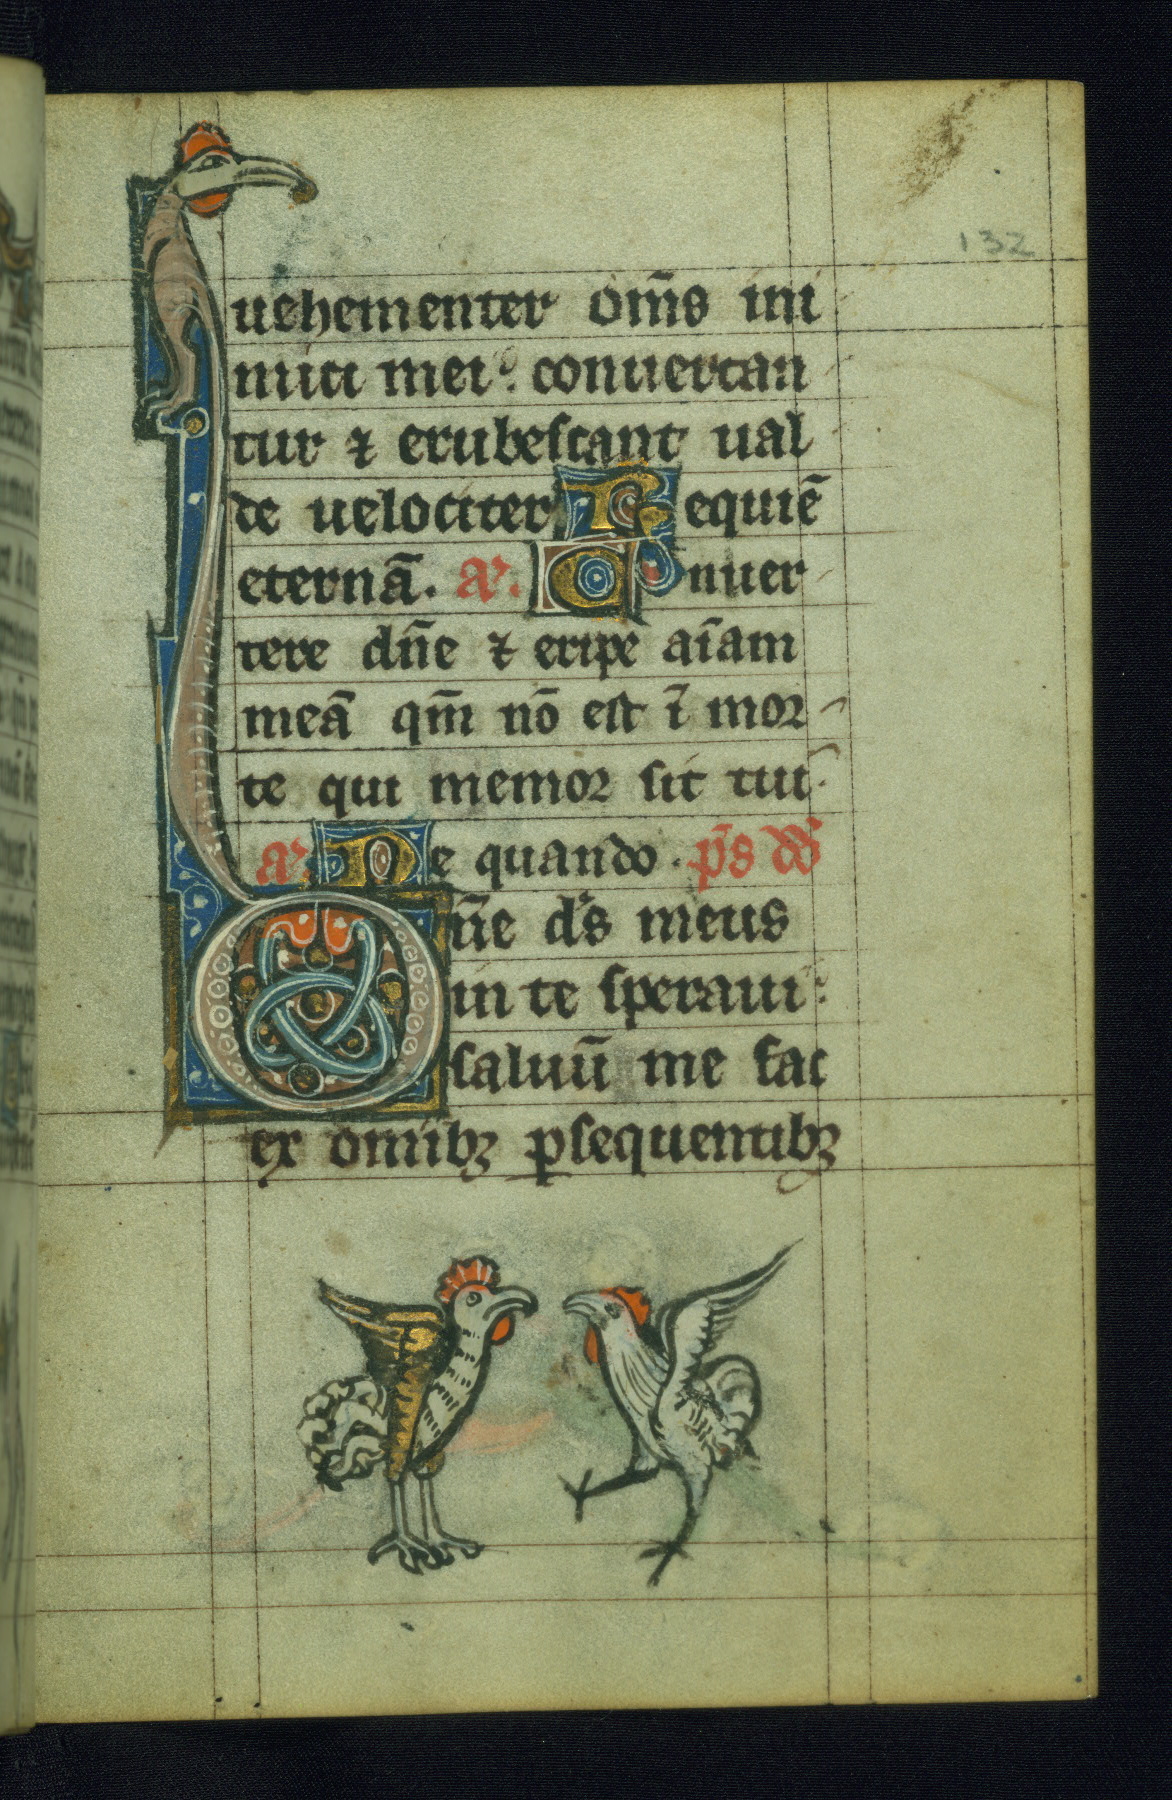 132
uehementer om̄s ini
mici mei : conuertan
tur ⁊ erubescant ual
de uelociter Requiē
eternā. a͛. Conuer
tere dn̄e ⁊ eripe aīam
meā qm̄ nō est ī mor
te qui memor sit tui.
a͛. Ne quando. p̄s dd̄
Dn̄e ds̄ meus
in te speraui :
saluū me fac
ex omībꝫ ꝑsequentibꝫ